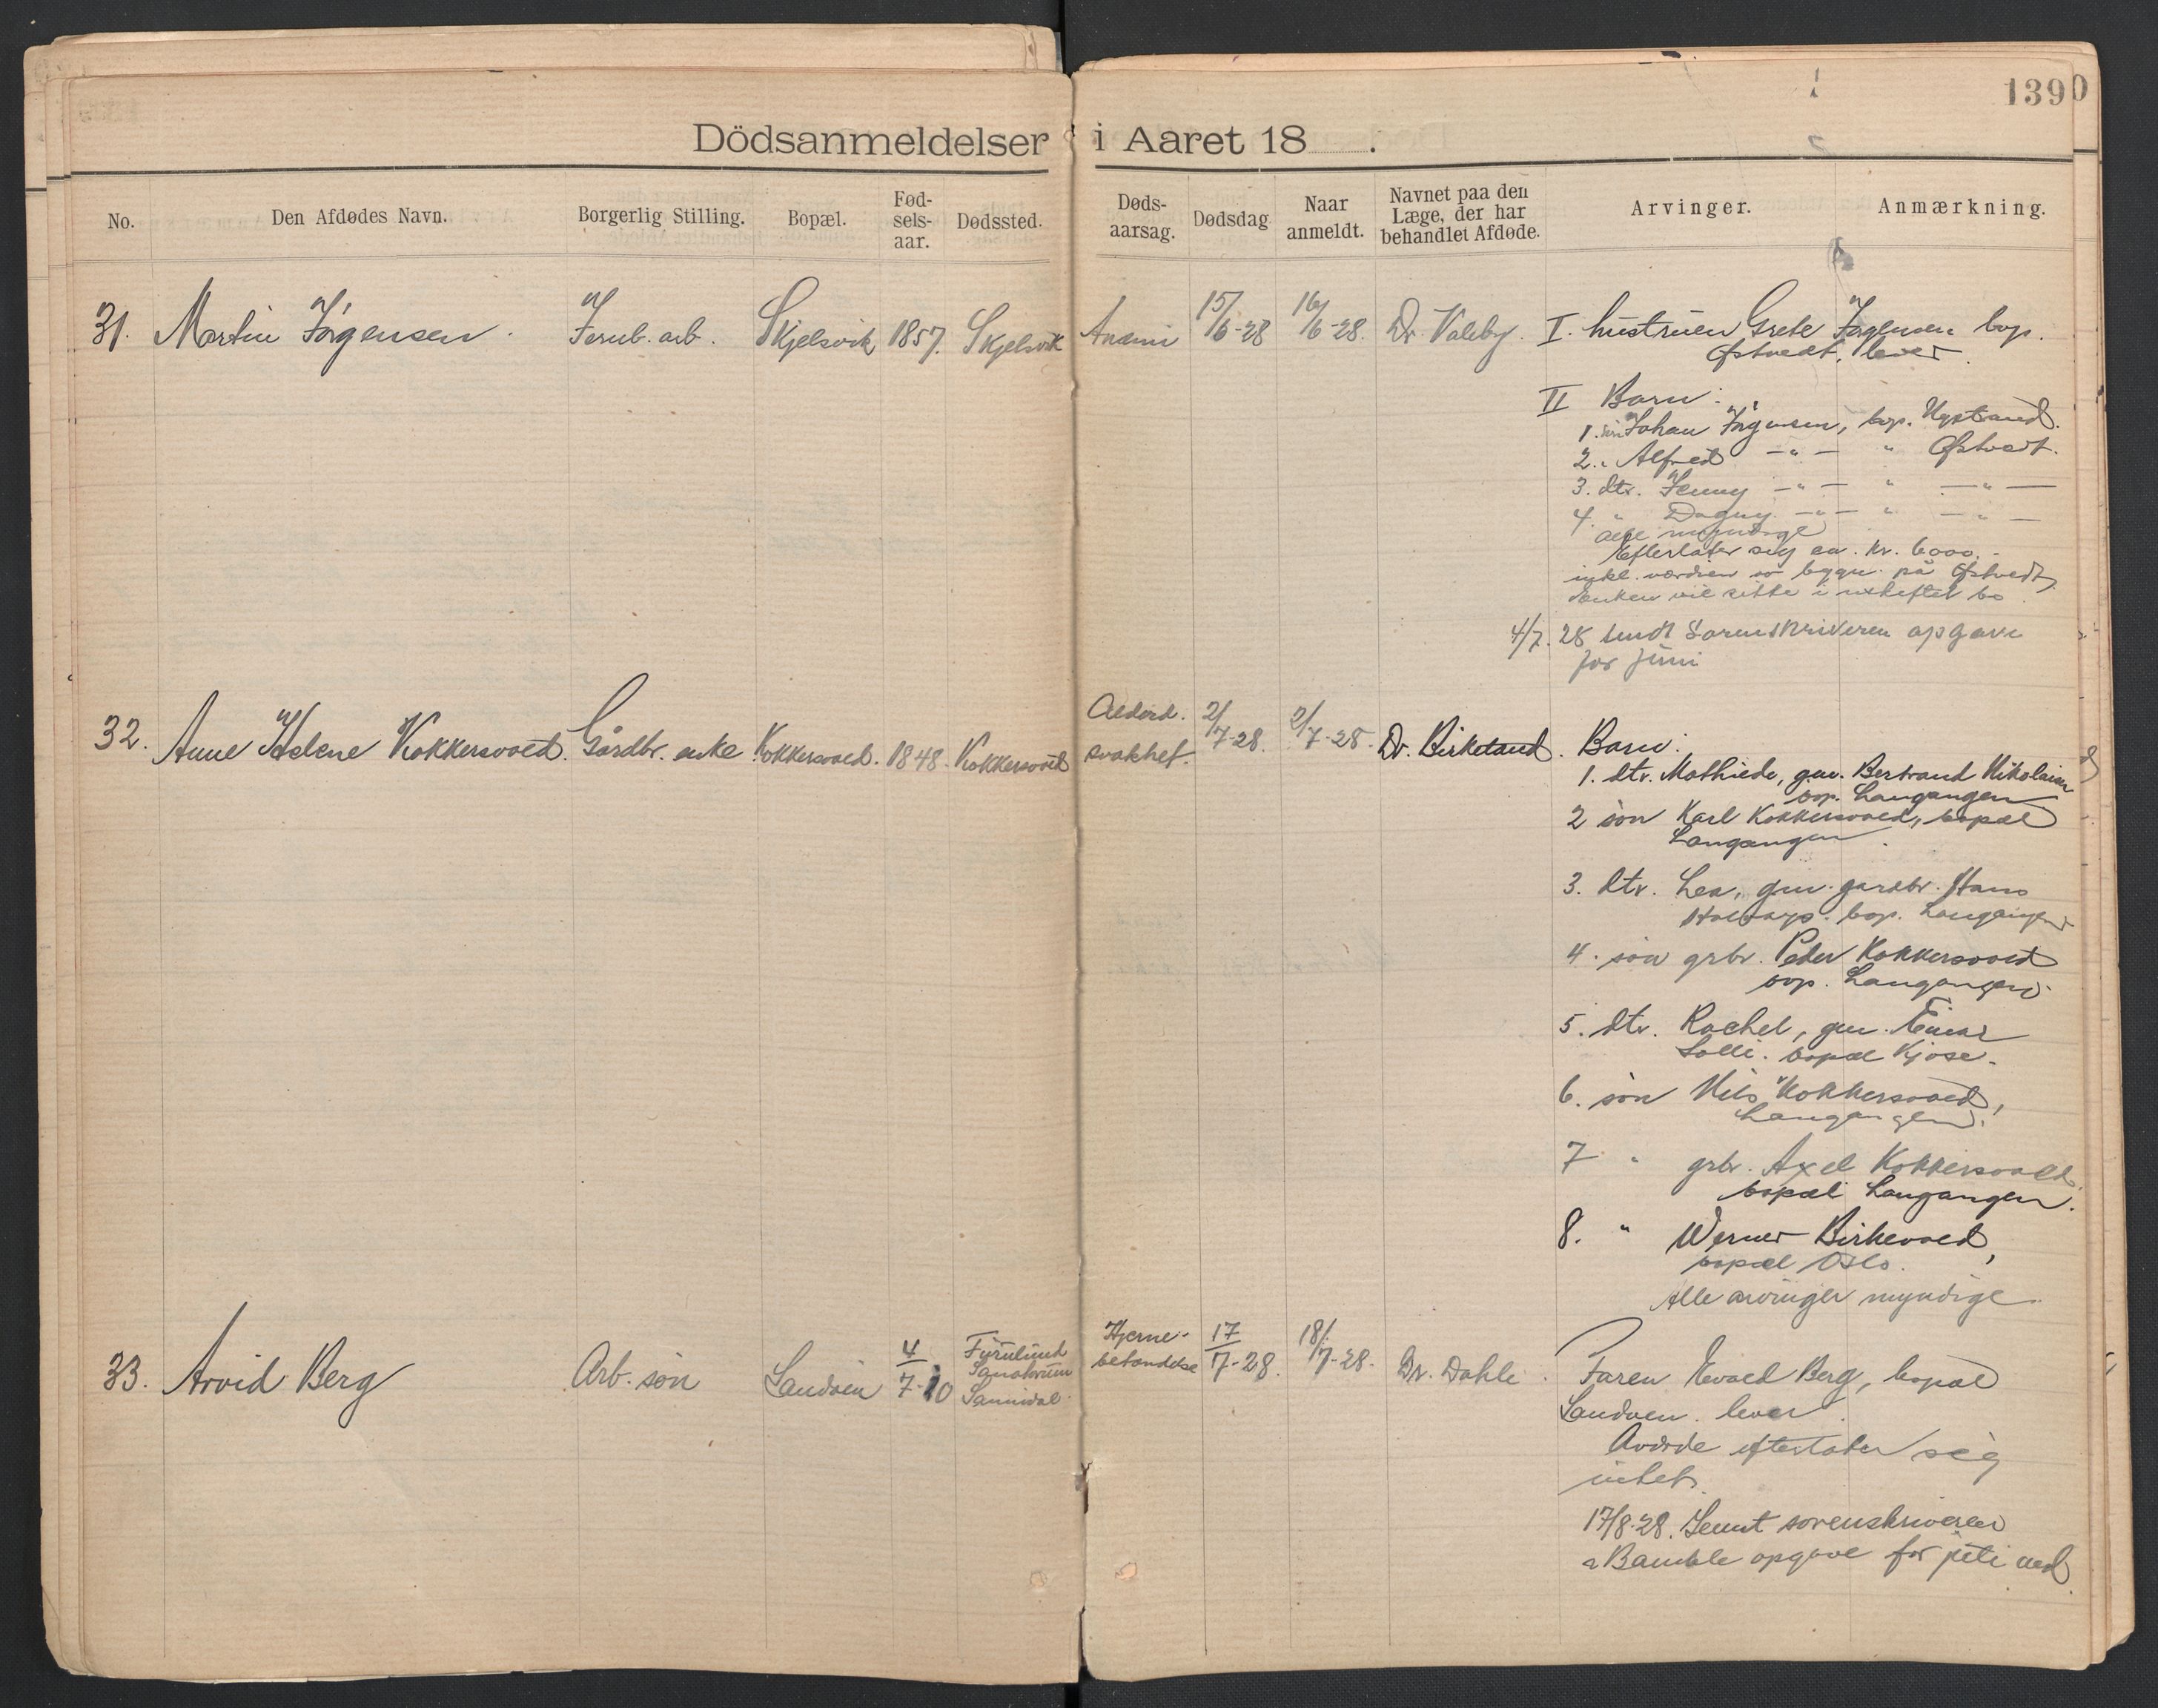 1390
Dödsanmeldelser i Aaret 18 .
No. Den Afdødes Navn. Borgerlig Stilling. Bopæl. Fød-sels-aar. Dødssted. Døds-aarsag. Dødsdag Naar anmeldt. Navnet paa den Læge, der har behandlet Afdøde. Arvinger. Anmærkning.
31. Martin Jörgensen. Jernb. arb. Skjelsvik 1857. Skjelsvik Anæmi 15/6-28 16/6-28. Dr. Valeby. I. hustruen Grete Jørgensen bop.
Østvedt, lever.
II Barn:
1. sön Johan Jörgensen, bop. Nystrand.
2. " Alfred — " — " Østvedt.
3. dtr. Jenny — " — " — " —
4. " Dagny — " — " — " —
alle myndige
Efterlater sig ca. kr. 6000.-
inkl. værdien av bygn. på Østvedt,
Enken vil sitte i uskiftet bo
4/7. 28 sendt Sorenskriveren opgave
for juni
32. Anne Helene Kokkersvold. Gårdbr. enke Kokkersvold. 1848. Kokkersvold Alderd. svakhet. 2/7-28. 2/7-28. Dr. Birkeland. Barn:
1. dtr. Mathilde, gm. Bertrand Nikolaisen
bop. Langangen
2 sön Karl Kokkersvold, bopæl
Langangen.
3. dtr. Lea, gm. gardbr. Hans
bop. Langangen
4. sön grbr. Peder Kokkersvold
bop. Langangen.
5. dtr. Rachel, gm. Einar
Lolli. bopæl Kjose.
6. sön Nils Kokkersvold,
Langangen.
7 " grbr. Axel Kokkersvold.
bopæl Langangen.
8. " Werner Birkevold,
bopæl Oslo.
Alle arvinger myndige.
33. Arvid Berg Arb. sön Sandöen 4/7-10 Furulund Sanatorium Sannidal. Hjerne-betændelse 17/7-28. 18/7-28. Dr. Dahle. Faren Evald Berg, bopæl
Sandöen. lever.
Avdöde efterlater sig
intet.
17/8-28. Sendt sorenskriveren
i Bamble opgave for juli md.